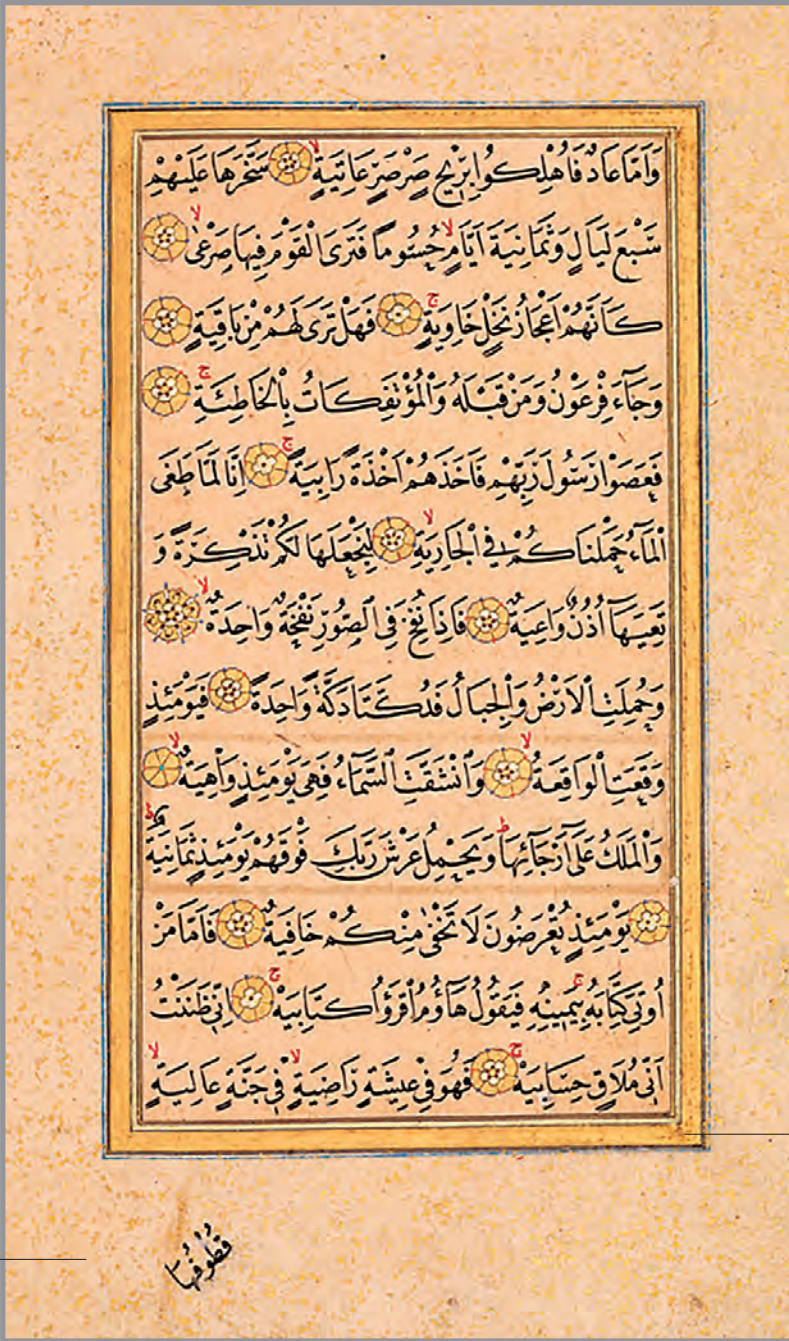 وَاَمَّا عَادٌ فَاُهْلِكُوا بِرٖيحٍ صَرْصَرٍ عَاتِيَةٍ لا سَخَّرَهَا عَلَيْهِمْ
سَبْعَ لَيَالٍ وَثَمَانِيَةَ اَيَّامٍ لا حُسُومًا فَتَرَى الْقَوْمَ فٖيهَا صَرْعٰى لا
كَاَنَّهُمْ اَعْجَازُ نَخْلٍ خَاوِيَةٍ ج فَهَلْ تَرٰى لَهُمْ مِنْ بَاقِيَةٍ
وَجَٓاءَ فِرْعَوْنُ وَمَنْ قَبْلَهُ وَالْمُؤْتَفِكَاتُ بِالْخَاطِئَةِ ج
فَعَصَوْا رَسُولَ رَبِّهِمْ فَاَخَذَهُمْ اَخْذَةً رَابِيَةً ج اِنَّا لَمَّا طَغَى
الْمَٓاءُ حَمَلْنَاكُمْ فِي الْجَارِيَةِ لا لِنَجْعَلَهَا لَكُمْ تَذْكِرَةً وَ
تَعِيَهَٓا اُذُنٌ وَاعِيَةٌ فَاِذَا نُفِخَ فِي الصُّورِ نَفْخَةٌ وَاحِدَةٌ لا
وَحُمِلَتِ الْاَرْضُ وَالْجِبَالُ فَدُكَّتَا دَكَّةً وَاحِدَةً فَيَوْمَئِذٍ
وَقَعَتِ الْوَاقِعَةُ لا وَانْشَقَّتِ السَّمَٓاءُ فَهِيَ يَوْمَئِذٍ وَاهِيَةٌ لا
وَالْمَلَكُ عَلٰٓى اَرْجَٓائِهَا ط وَيَحْمِلُ عَرْشَ رَبِّكَ فَوْقَهُمْ يَوْمَئِذٍ ثَمَانِيَةٌ ط
يَوْمَئِذٍ تُعْرَضُونَ لَا تَخْفٰى مِنْكُمْ خَافِيَةٌ فَاَمَّا مَنْ
اُو۫تِيَ كِتَابَهُ بِيَمٖينِهٖ ج فَيَقُولُ هَٓاؤُمُ اقْرَؤُ۫ا كِتَابِيَهْ ج اِنّٖي ظَنَنْتُ
اَنّٖي مُلَاقٍ حِسَابِيَهْ ج فَهُوَ فٖي عٖيشَةٍ رَاضِيَةٍ لا فٖي جَنَّةٍ عَالِيَةٍ لا
قُطُوفُهَا